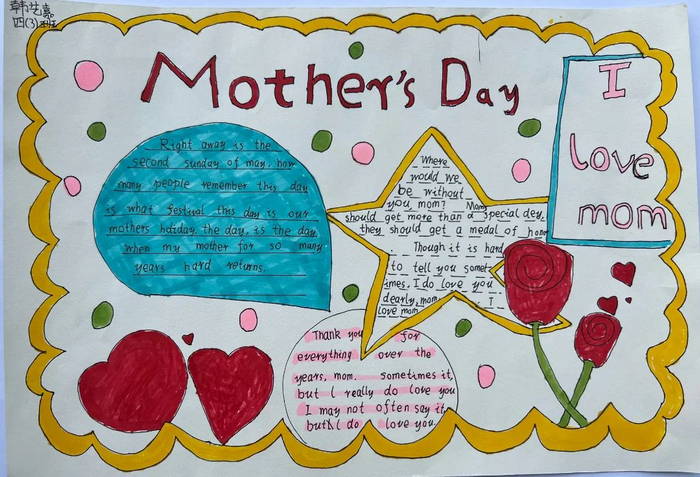 韩艺嘉
四(3)班
Mother's Day
I
love
mom
Right away is the
second sunday of may. how
many people remember this day
is what festival this day is our
mothers hdiday. the day. is the day
when my mother for so many
years hard returns.
Where
would we
be without
you mom? Moms
should get more than a special dey.
they should get a medal of honor
Though it is hard
to tell you somet
imes. I do love you
dearly, mom. I
love mom
Thank you for
everything over the
years, mom. sometimes it,
but l really do love you
I may not often say it,
but I do love you.